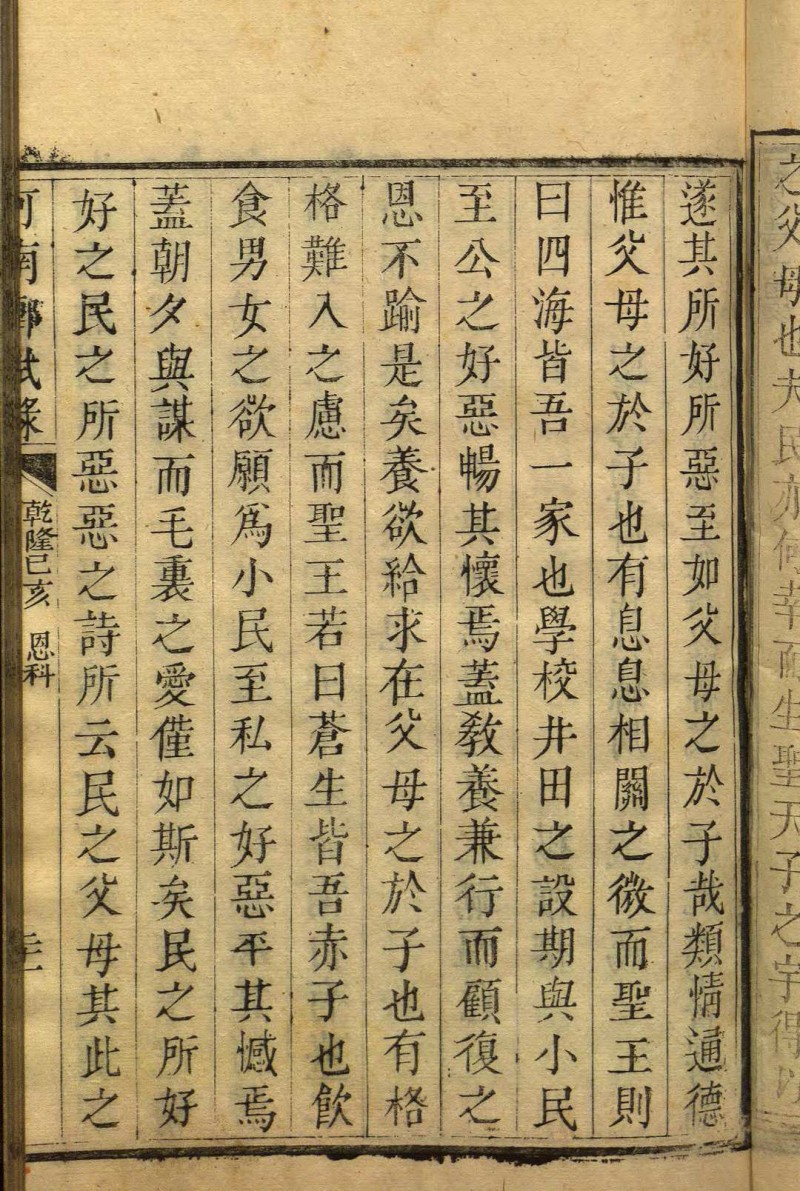 之父母也夫民亦何幸而生聖天子之宇得以
遂其所好所惡至如父母之於子哉類情通德
惟父母之於子也有息息相關之微而聖王則
曰四海皆吾一家也學校井田之設期與小民
至公之好惡暢其懷焉蓋教養兼行而顧復之
恩不踰是矣養欲給求在父母之於子也有格
格難入之慮而聖王若曰蒼生皆吾赤子也飲
食男女之欲願爲小民至私之好惡平其憾焉
蓋朝夕與謀而毛裏之愛僅如斯矣民之所好
好之民之所惡惡之詩所云民之父母其此之
河南鄉試錄 乾隆己亥 恩科